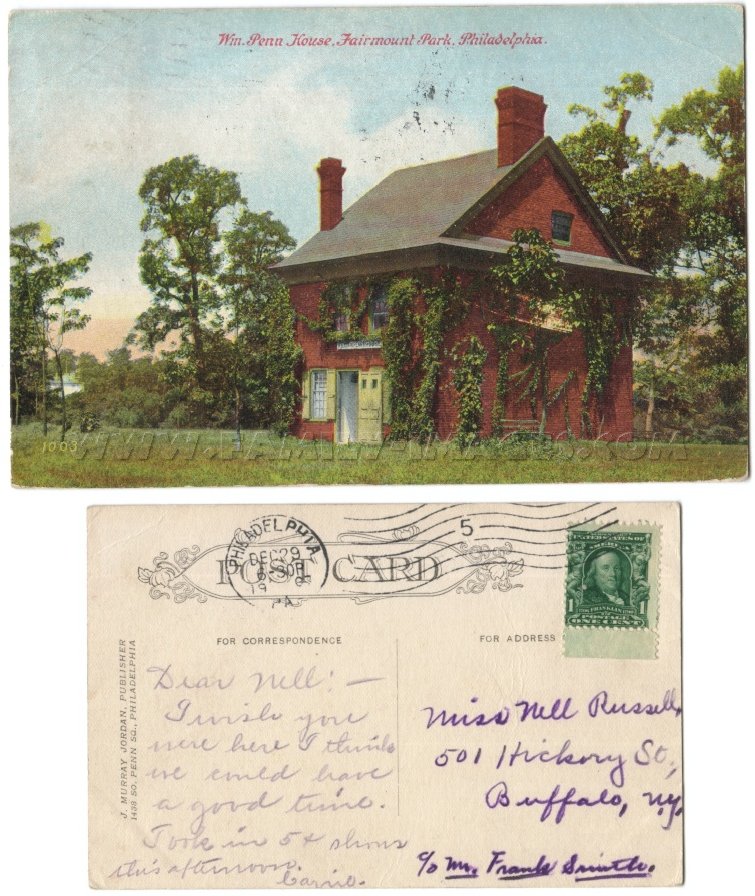 Wm. Penn House, Fairmount Park, Philadelphia.
1003
WWW.FAMILY-IMAGES.COM
PHILADELPHIA
DEC 29
PA
5
POST CARD
UNITED STATES OF AMERICA
1
FRANKLIN
POSTAGE
ONE CENT
FOR CORRESPONDENCE
FOR ADDRESS
J. MURRAY JORDAN, PUBLISHER
1439 SO. PENN SQ., PHILADELPHIA
Dear Nell: —
I wish you
were here I think
we could have
a good time.
Took in 5¢ shows
this afternoon.
Carrie.
Miss Nell Russell,
501 Hickory St.,
Buffalo, N.Y.
c/o Mr. Frank Smith.